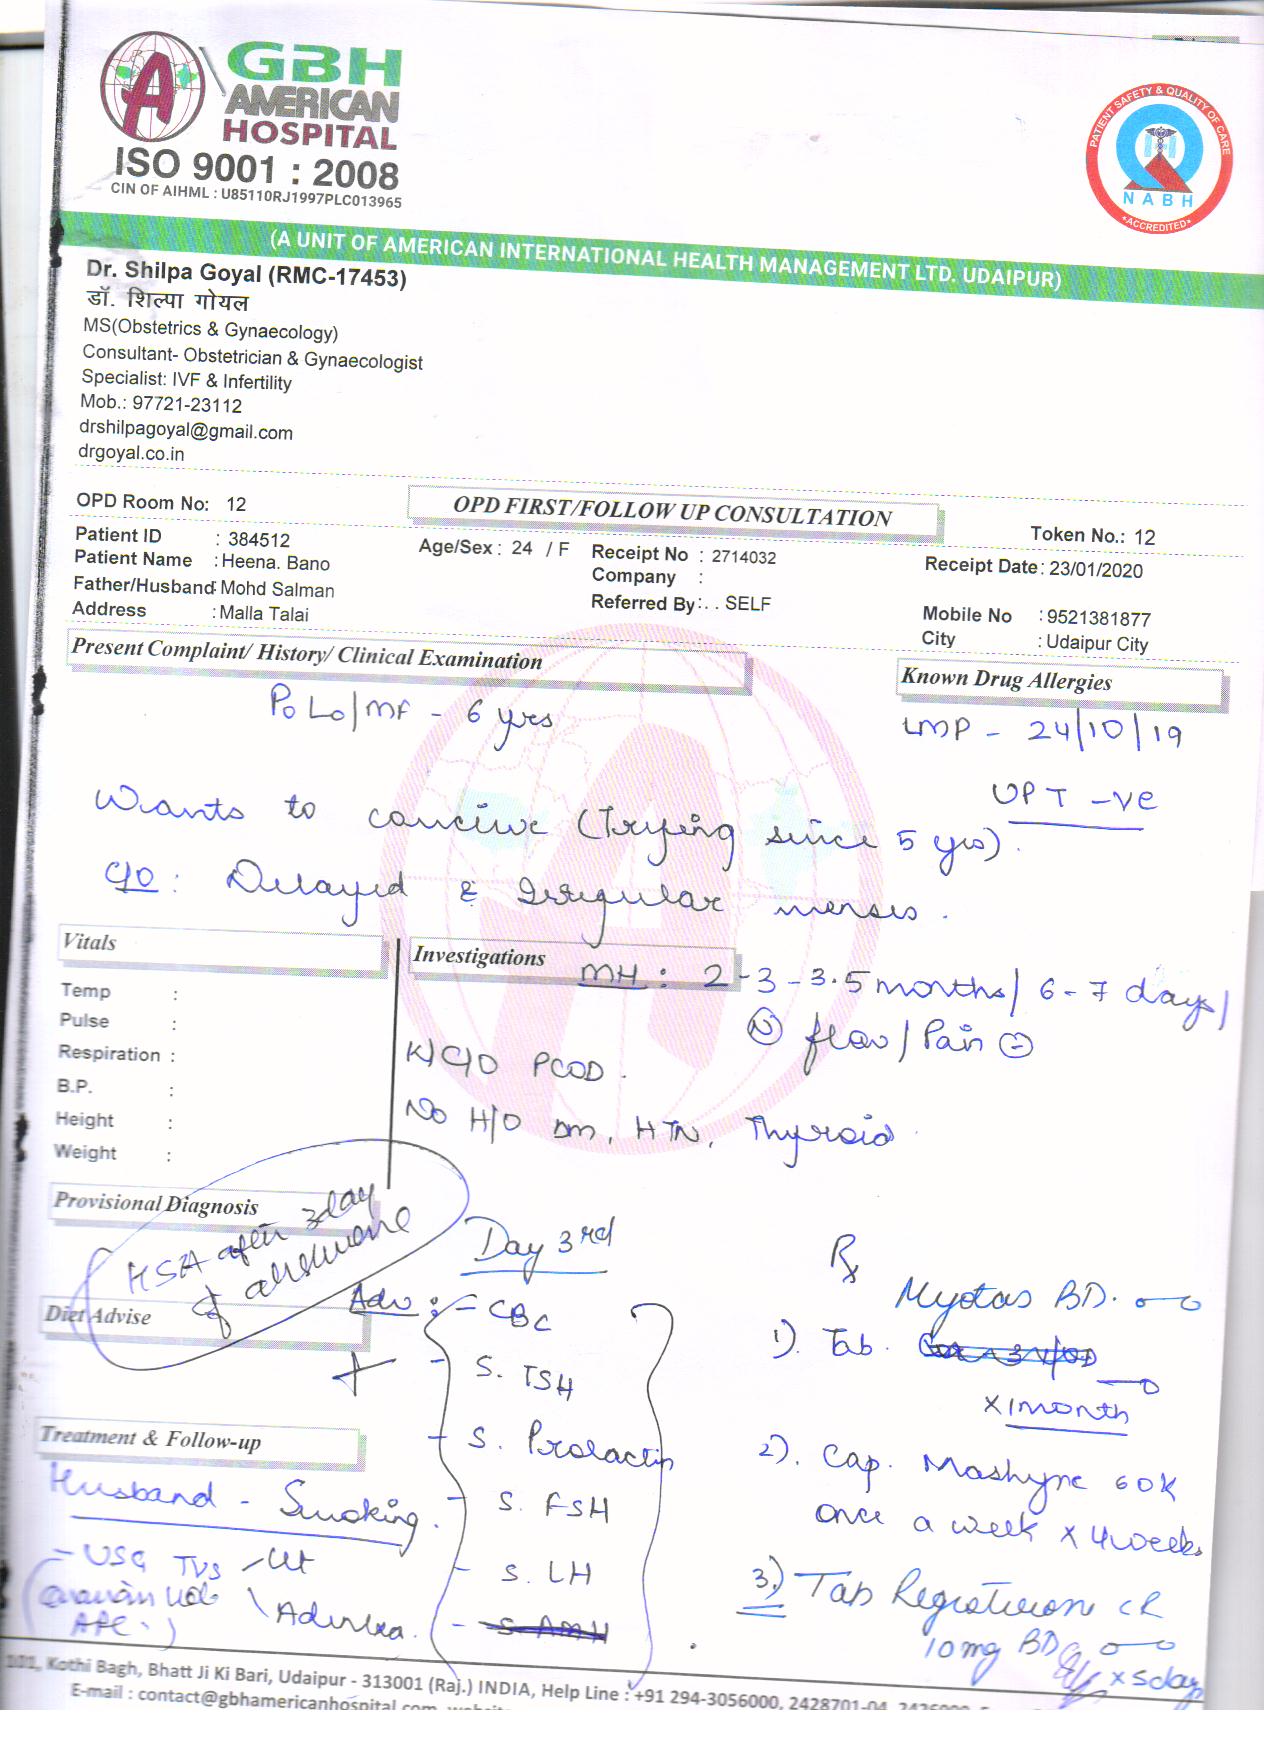 GBH
AMERICAN
HOSPITAL
ISO 9001 : 2008
CIN OF AIHML : U85110RJ1997PLC013965
PATIENT SAFETY & QUALITY OF CARE
NABH
ACCREDITED
(A UNIT OF AMERICAN INTERNATIONAL HEALTH MANAGEMENT LTD. UDAIPUR)
Dr. Shilpa Goyal (RMC-17453)
डॉ. शिल्पा गोयल
MS(Obstetrics & Gynaecology)
Consultant- Obstetrician & Gynaecologist
Specialist: IVF & Infertility
Mob.: 97721-23112
drshilpagoyal@gmail.com
drgoyal.co.in
OPD Room No: 12
OPD FIRST/FOLLOW UP CONSULTATION
Token No.: 12
Patient ID : 384512
Age/Sex : 24 / F
Receipt No : 2714032
Receipt Date : 23/01/2020
Patient Name : Heena. Bano
Company :
Father/Husband : Mohd Salman
Referred By : . . SELF
Mobile No : 9521381877
Address : Malla Talai
City : Udaipur City
Present Complaint/ History/ Clinical Examination
Known Drug Allergies
P0 L0/MF - 6 yrs
LMP - 24/10/19
UPT -ve
Wants to concive (Trying since 5 yrs).
C/O : Delayed & Irregular menses.
Vitals
Investigations
MH : 2-3-3.5 months/ 6-7 days/
N flow/ Pain
Temp :
Pulse :
Respiration :
B.P. :
Height :
Weight :
K/C/O PCOD.
No H/O DM, HTN, Thyroid.
Provisional Diagnosis
HSA after 3 day
of abstinence
Day 3rd
Adv : - CBC
- S. TSH
- S. Prolactin
- S. FSH
- S. LH
- S. AMH
Diet Advise
Treatment & Follow-up
Husband - Smoking.
- USG TVS Ut
AFC.
Adnexa.
Rx
Myotas BD.
1). Tab.
x 1 month
2). Cap. Mashyne 60K
once a week x 4 weeks
3.) Tab Regesterone CR
10mg BD
x 5 day
101, Kothi Bagh, Bhatt Ji Ki Bari, Udaipur - 313001 (Raj.) INDIA, Help Line : +91 294-3056000, 2428701-04,
E-mail : contact@gbhamericanhospital.com,